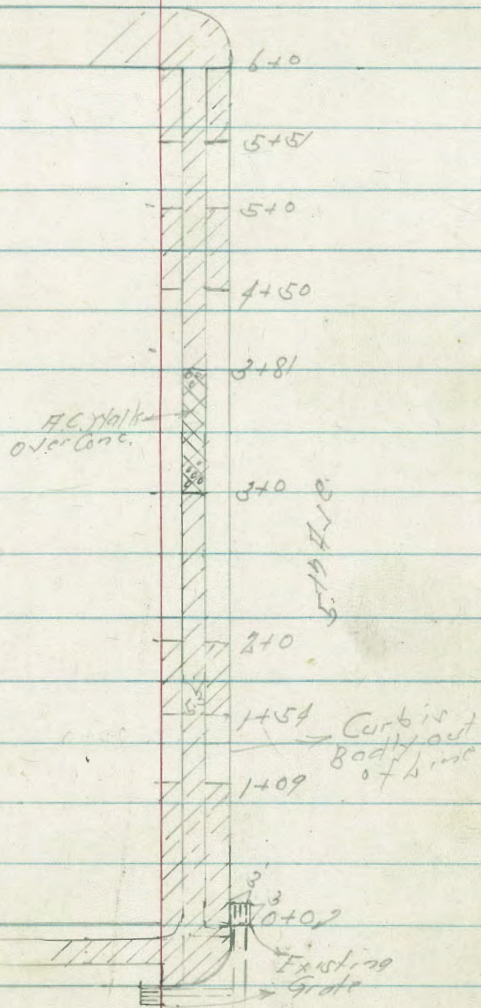 6+0
5+51
5+0
4+50
3+81
A.C. Walk
over Conc.
3+0
5th Ave
2+0
1+54
Curb is
Badly out
of Line
1+09
3'
3
Existing
Grate